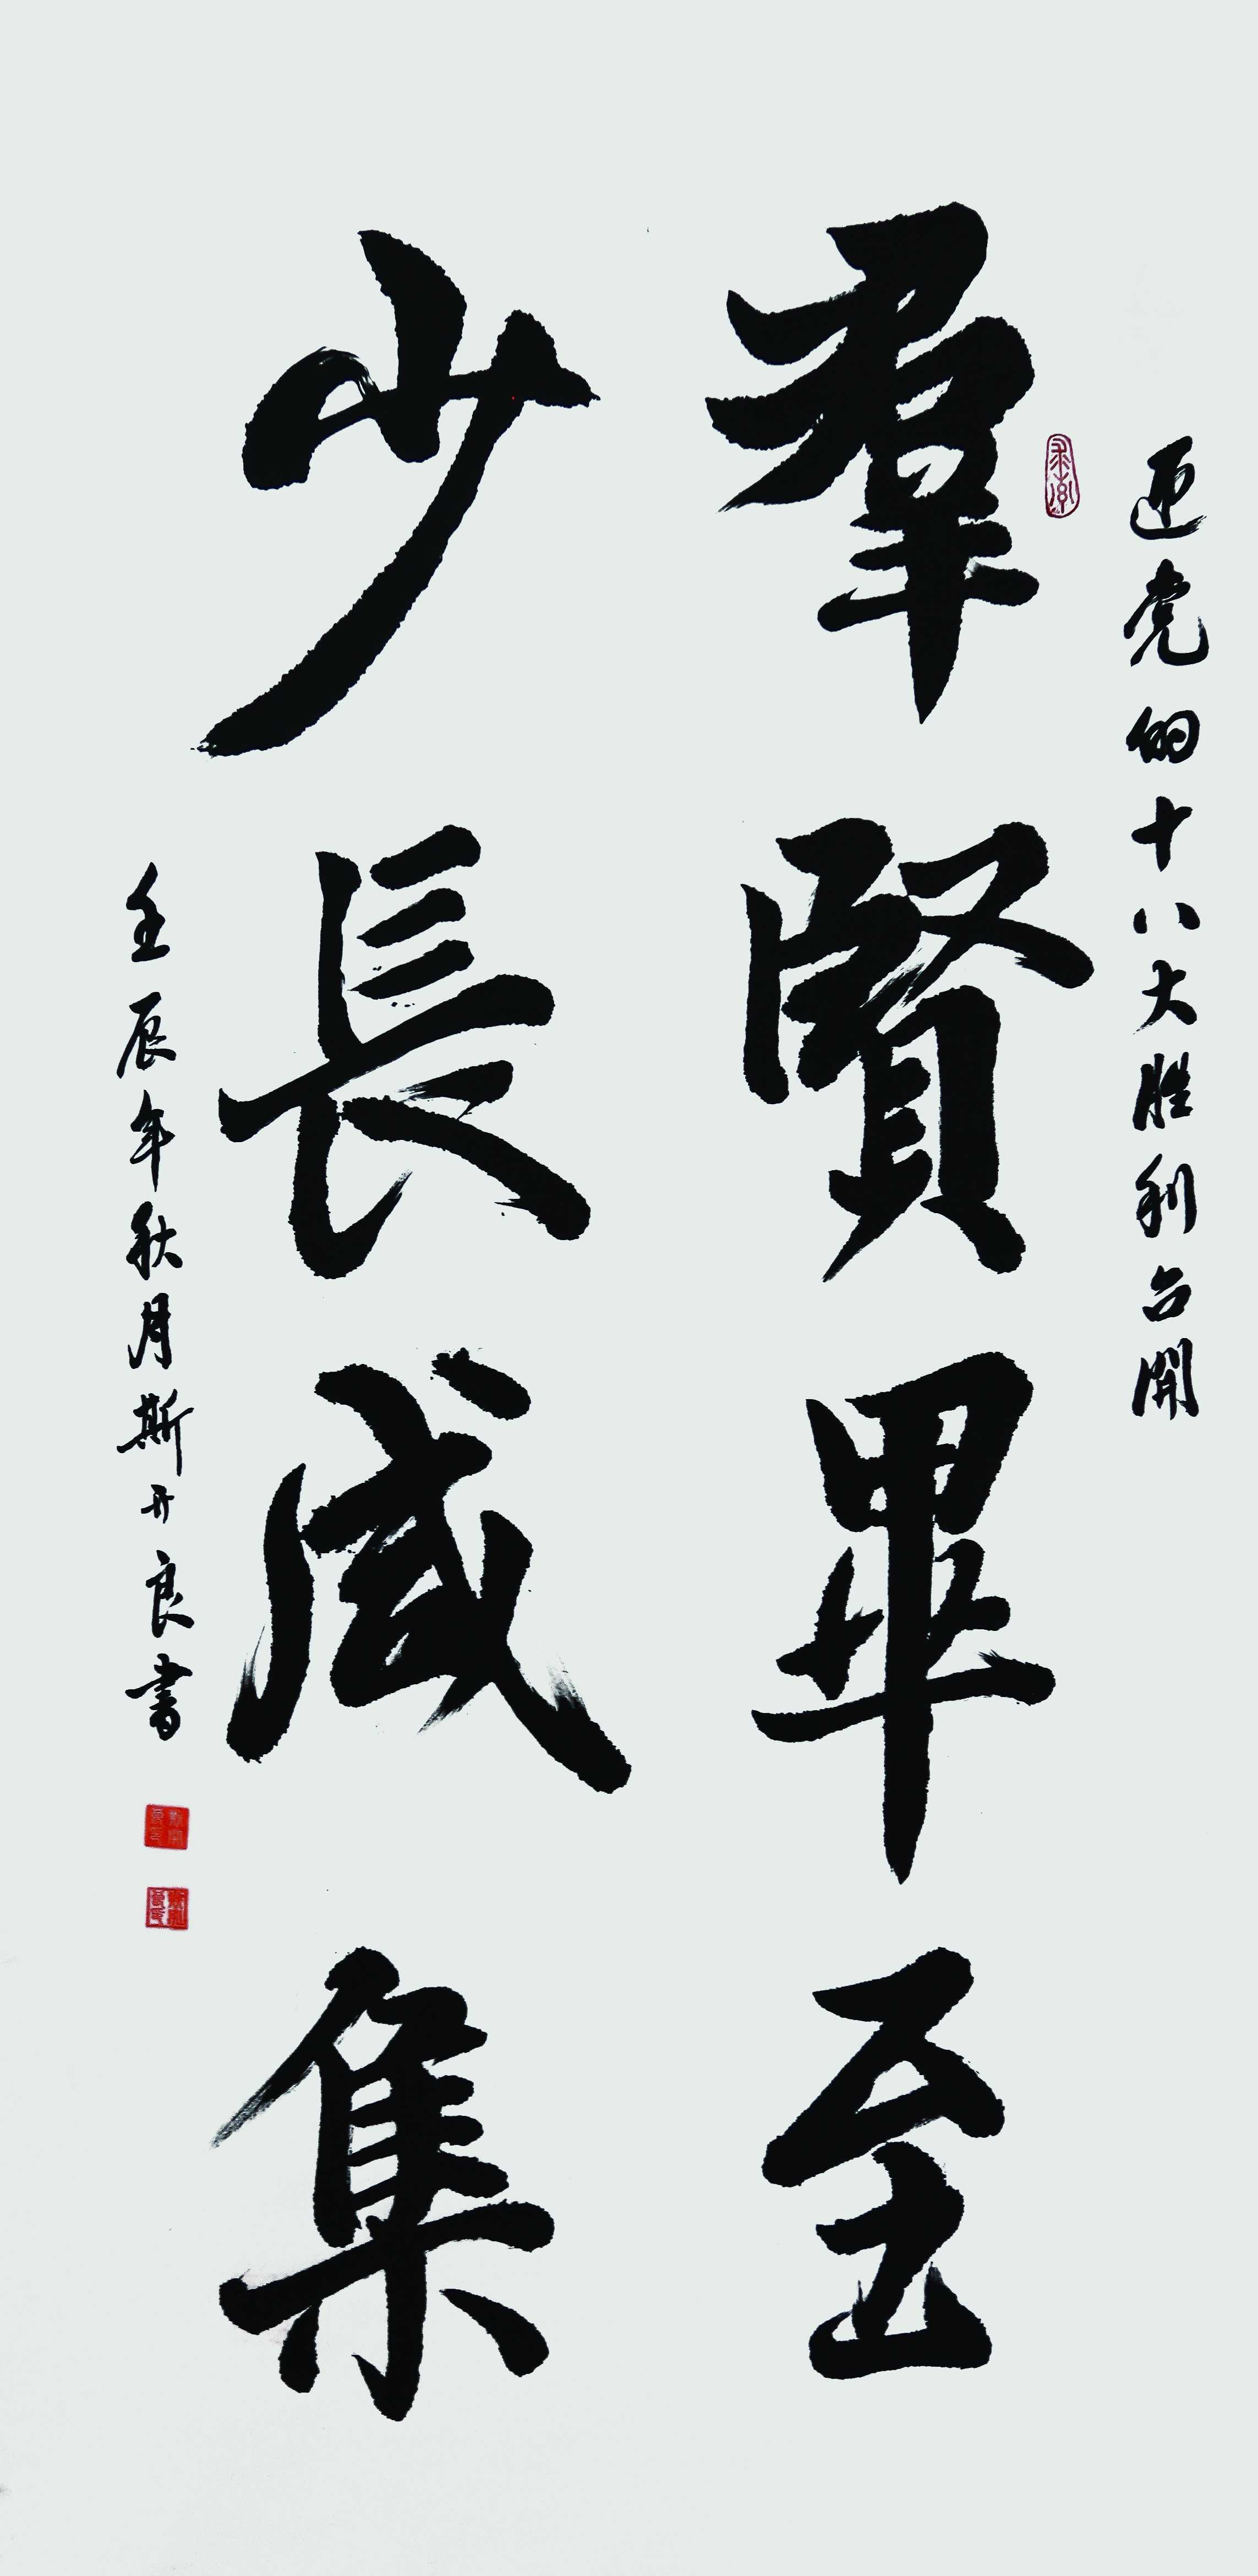 迎党的十八大胜利召開
羣賢畢至
少長咸集
壬辰年秋月斯开良書